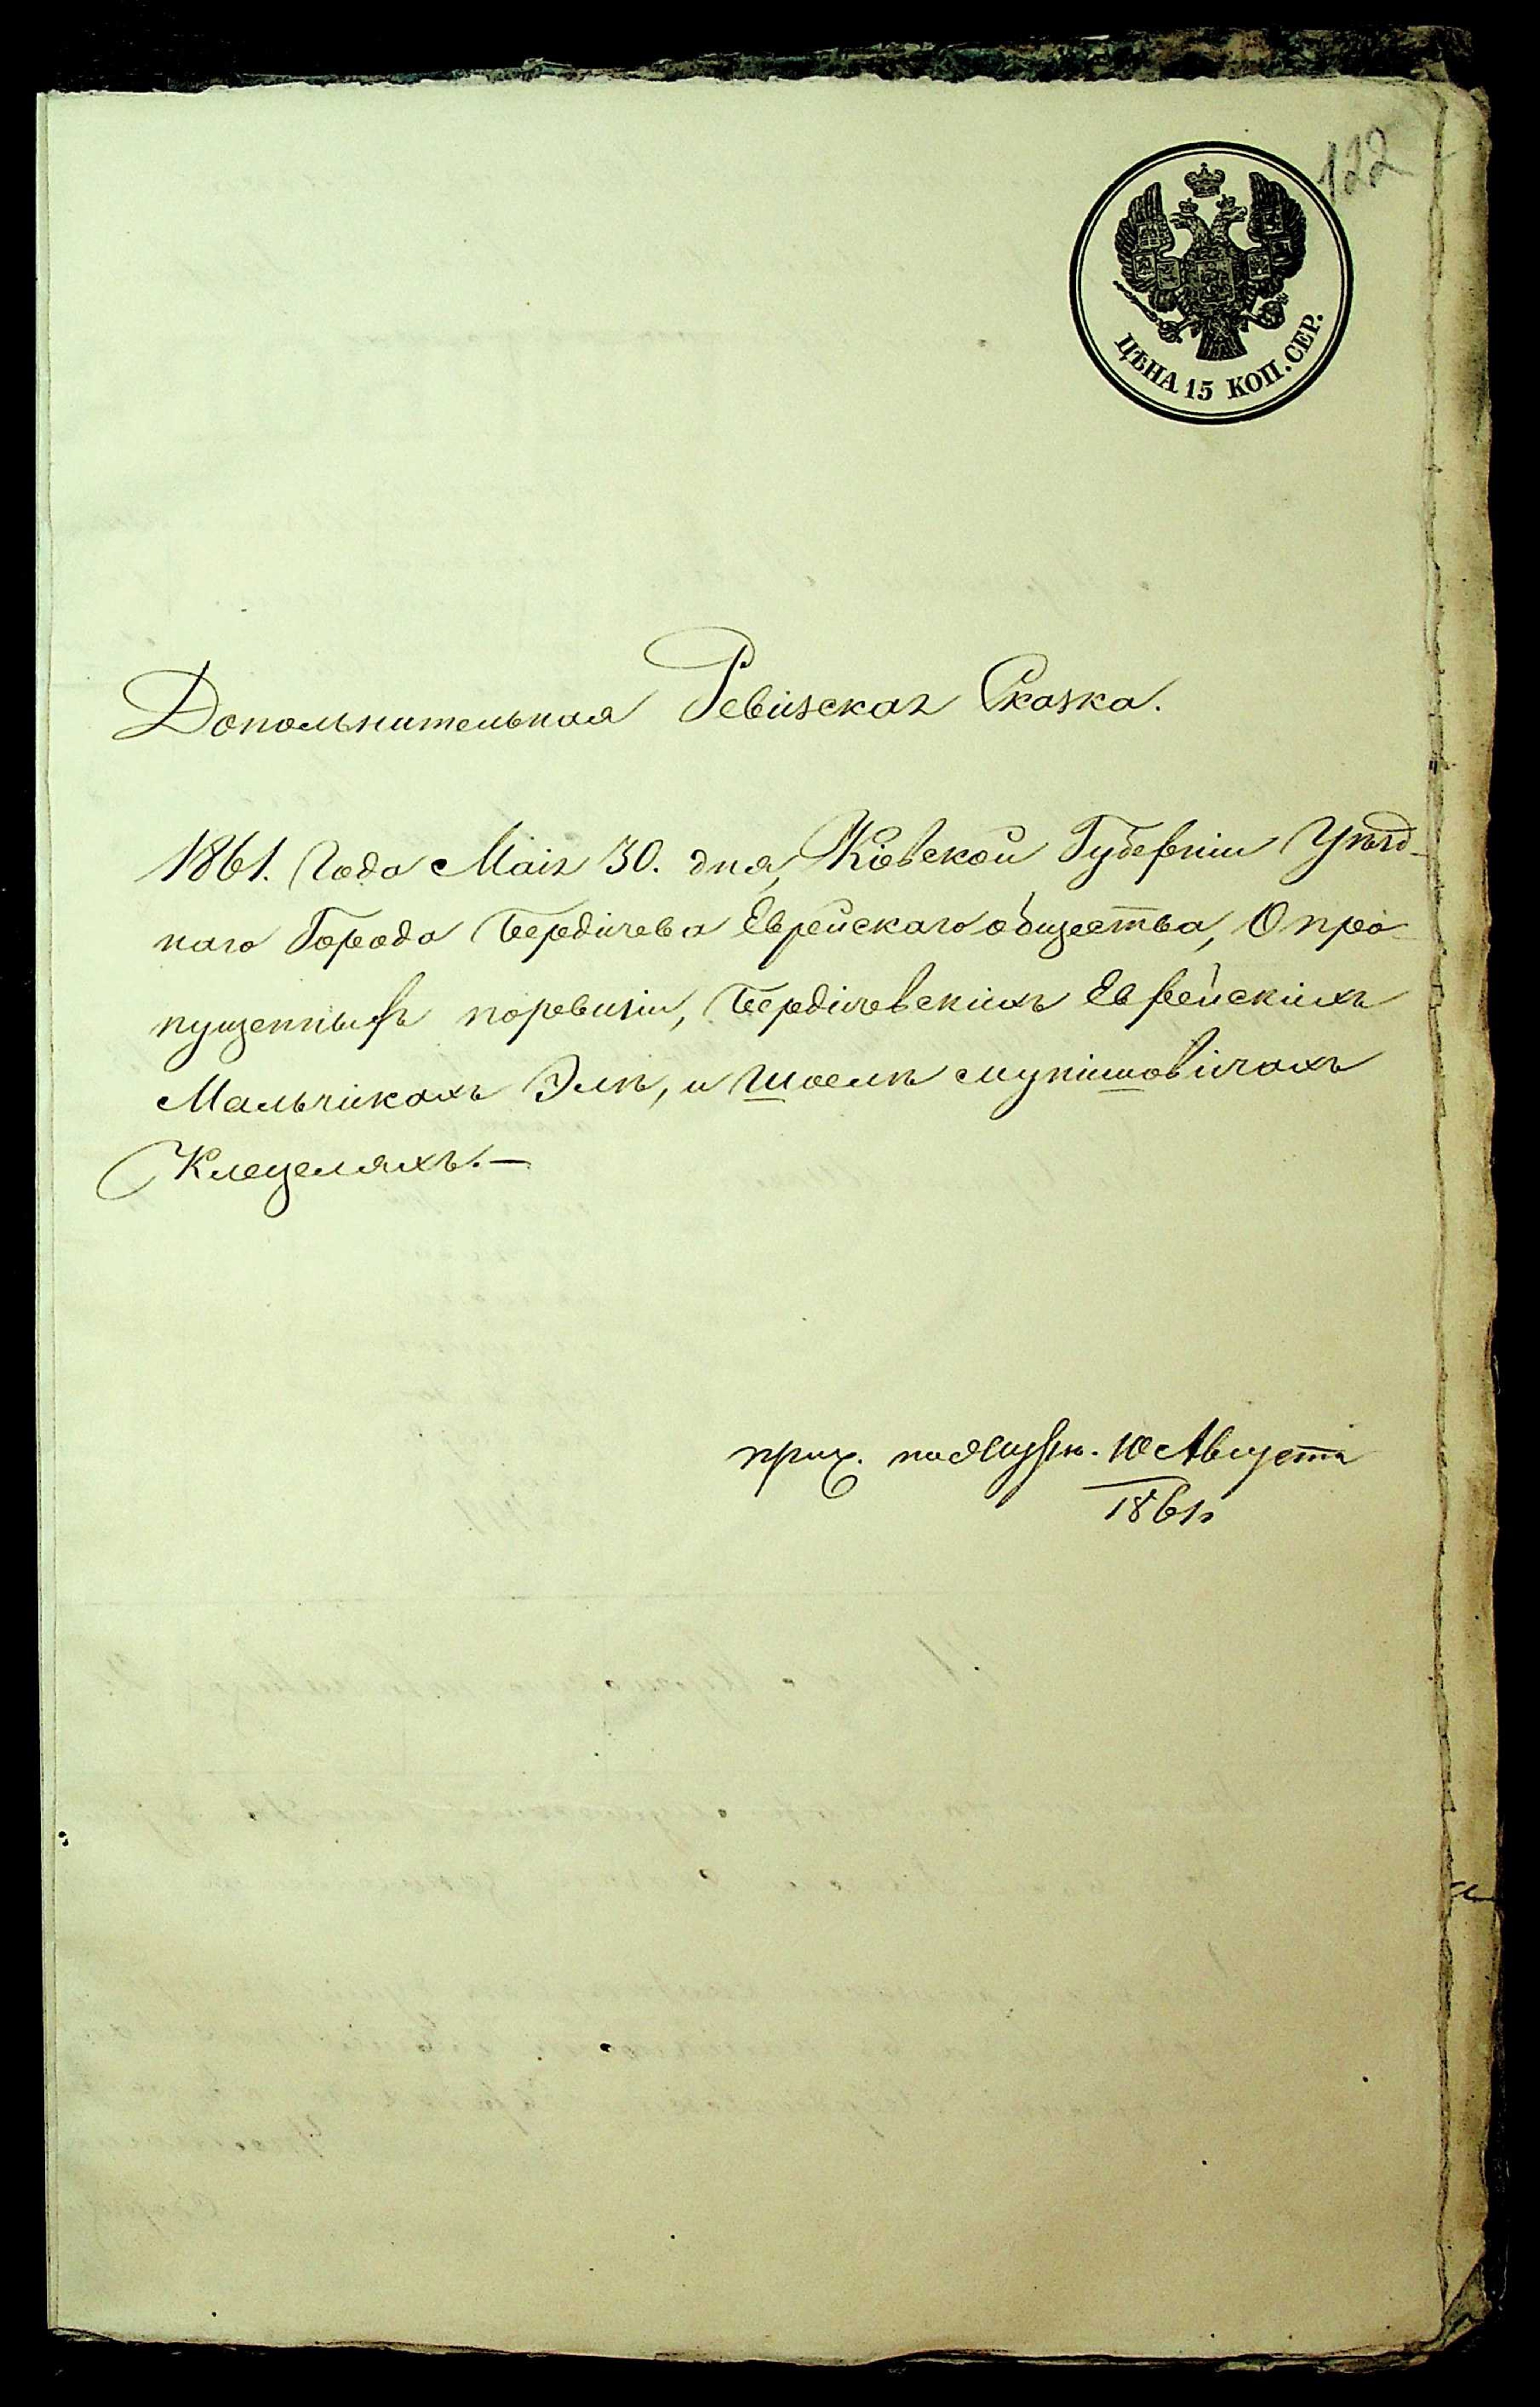 122
ЦѢНА 15 КОП. СЕР.
Дополнительная Ревизская Сказка.
1861. Года Маія 30. дня, Кіевской Губерніи Уѣзд-
наго Города Бердичева Еврейскаго общества, О про-
пущенныхъ поревизіи, Бердичевскихъ Еврейскихъ
Мальчикахъ Элѣ, и Шоелѣ
Клецеляхъ.—
10 Августа
1861